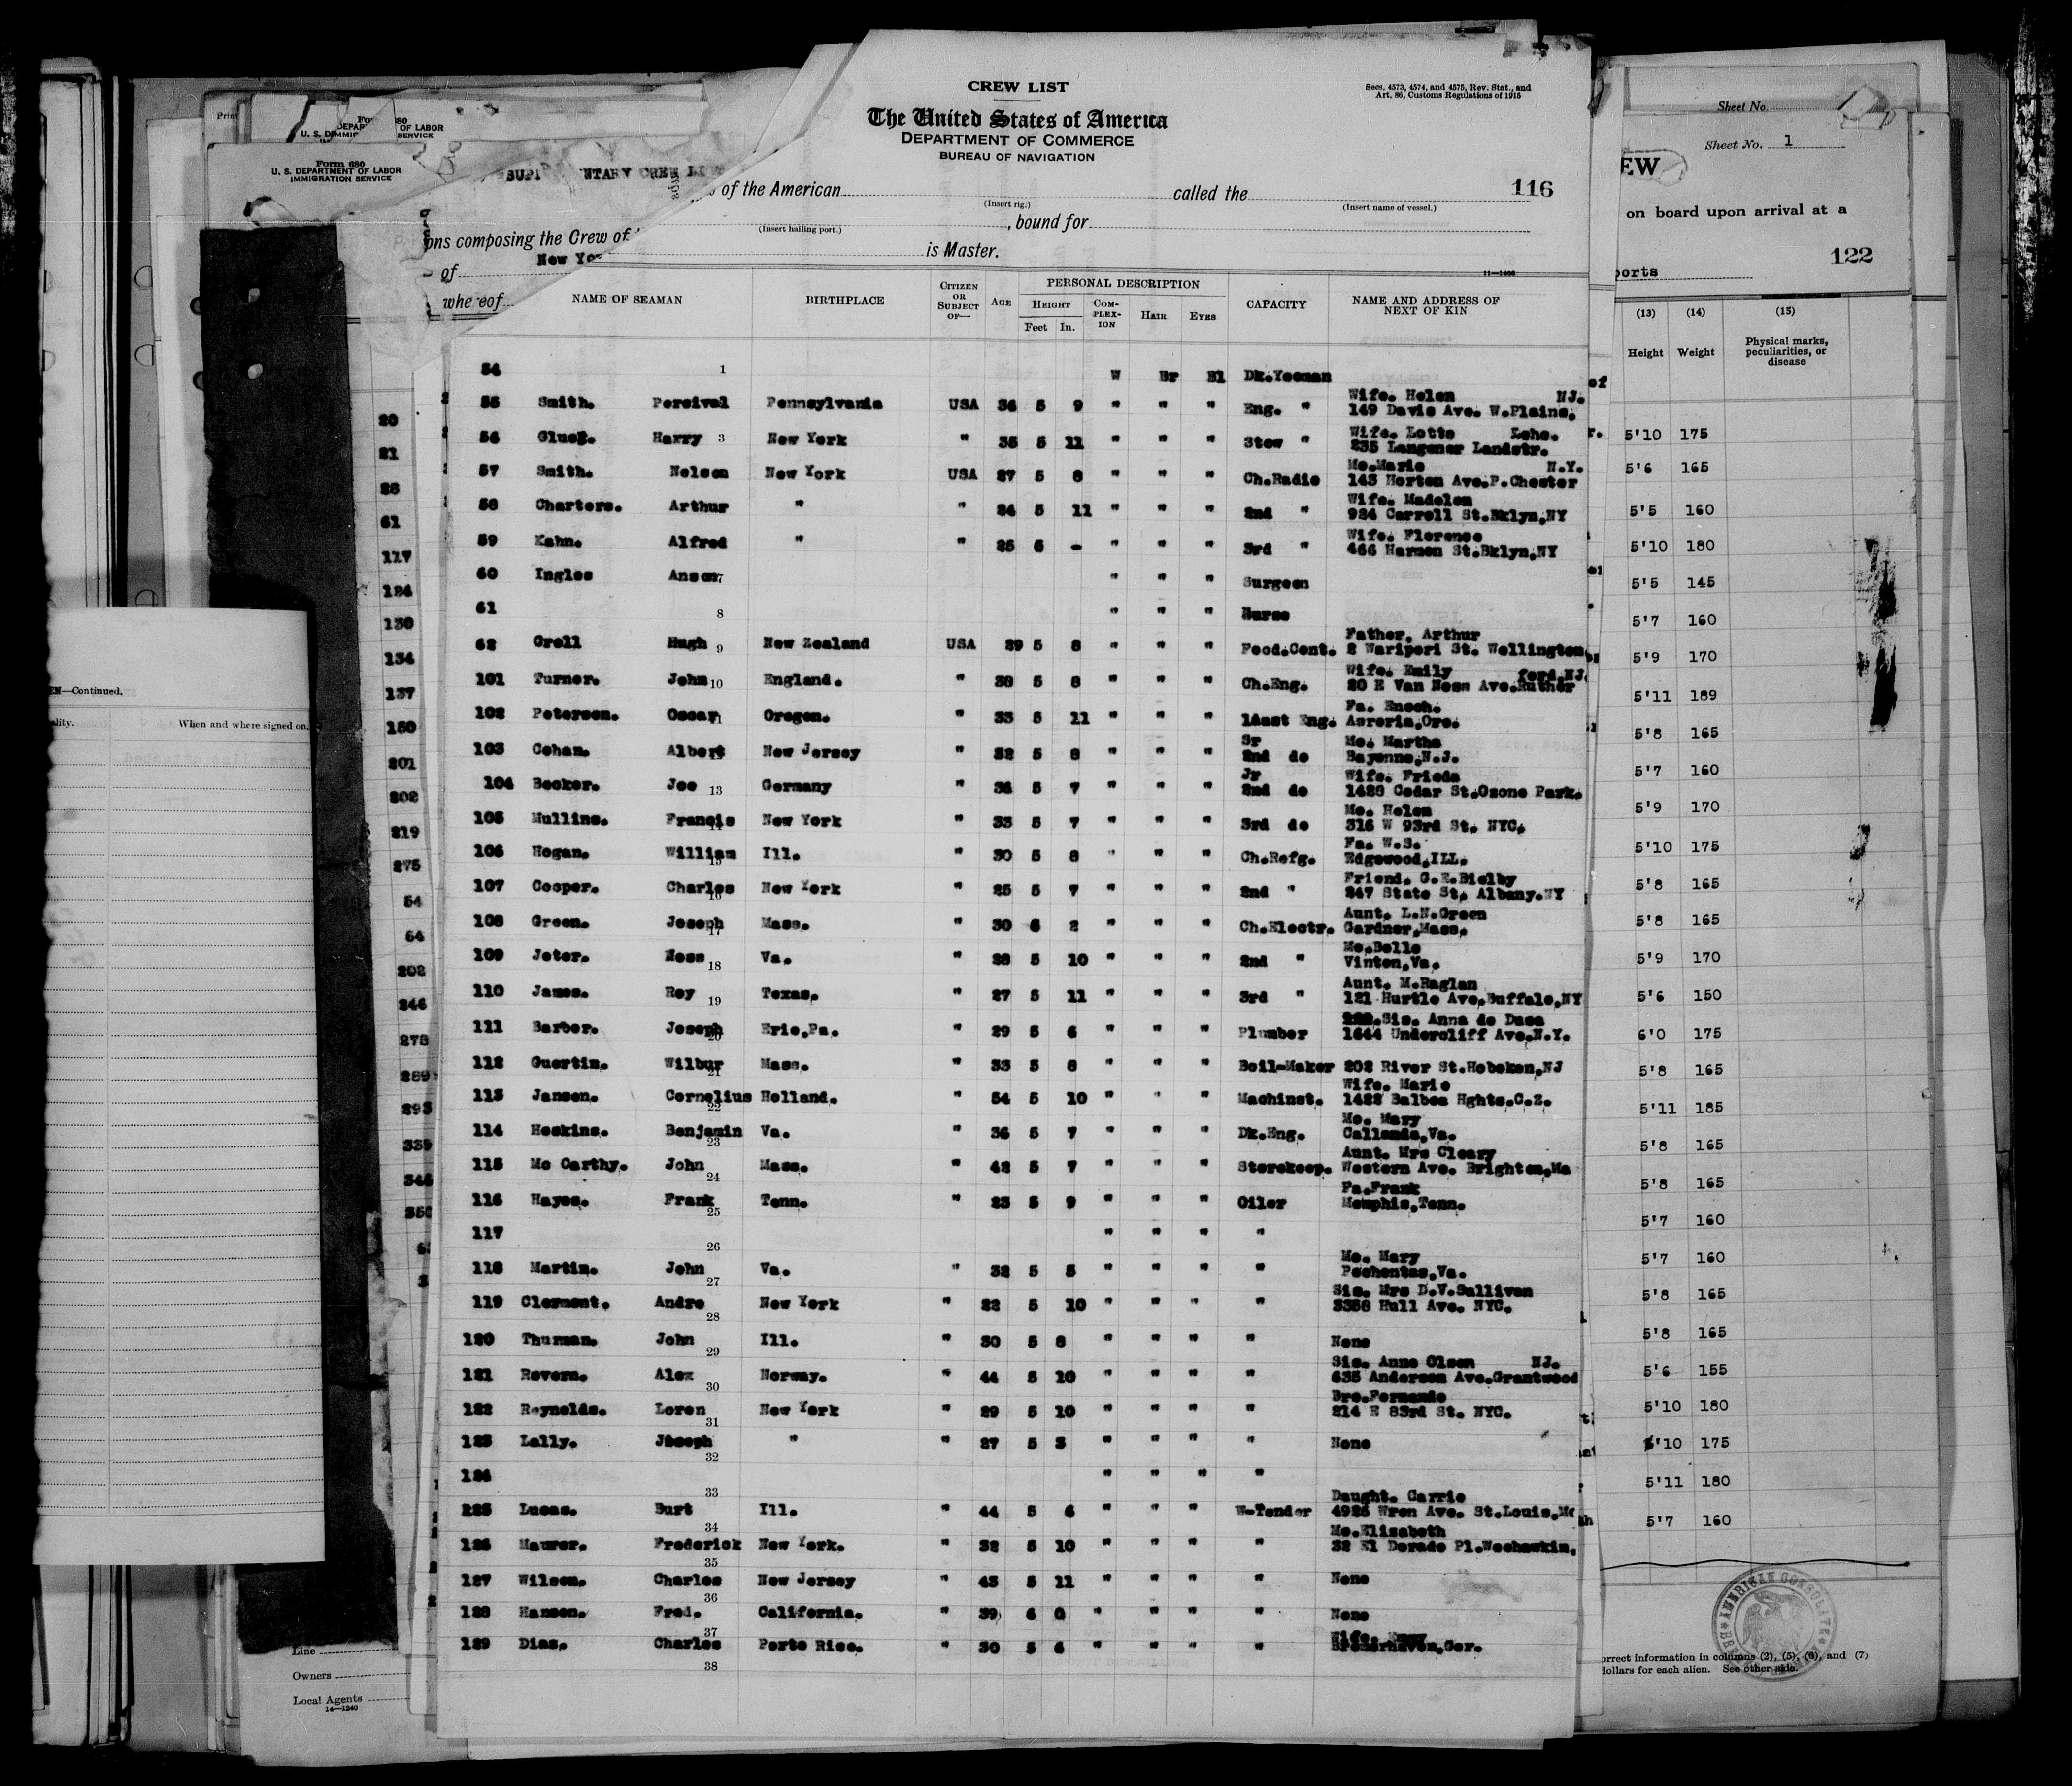 CREW LIST
Secs. 4573, 4574, and 4575, Rev. Stat., and
Art. 86, Customs Regulations of 1915
The United States of America
DEPARTMENT OF COMMERCE
BUREAU OF NAVIGATION
Form 680
U. S. DEPARTMENT OF LABOR
IMMIGRATION SERVICE
of the American called the 116
(Insert rig.) (Insert name of vessel.)
, bound for
(Insert hailing port.)
ons composing the Crew of
is Master.
of New Yo
whereof
11—1406
NAME OF SEAMAN BIRTHPLACE CITIZEN OR SUBJECT OF— AGE PERSONAL DESCRIPTION CAPACITY NAME AND ADDRESS OF NEXT OF KIN
HEIGHT COMPLEXION HAIR EYES
Feet In.
54 1 W Br Bl Dk.Yeoman
55 Smith. Percival Pennsylvania USA 36 5 9 " " " Eng. " Wife. Helen NJ.
149 Davis Ave. W.Plains.
56 Harry 3 New York " 35 5 11 " " " Stew " Wife. Lotte Lehe.
235 Langener Landstr.
57 Smith. Nelson New York USA 27 5 8 " " " Ch.Radio Mo.Marie N.Y.
143 Horton Ave.P.Chester
58 Charters. Arthur " " 24 5 11 " " " 2nd " Wife. Madelen
934 Carroll St.Bklyn,NY
59 Kahn. Alfred " " 25 6 - " " " 3rd " Wife. Florence
466 Harmon St.Bklyn,NY
60 Ingles Anson 7 " " " Surgeon
61 8 " " " Nurse
62 Grell Hugh 9 New Zealand USA 29 5 8 " " " Food.Cont. Father, Arthur
2 Waripori St. Wellington
101 Turner. John 10 England. " 38 5 8 " " " Ch.Eng. Wife. Emily ford,NJ.
20 E Van Ness Ave.Ruther
102 Peterson. Oscar Oregon. " 33 5 11 " " " 1Asst Eng. Fa. Enoch.
Asroria,Ore.
103 Cohan. Albert New Jersey " 32 5 8 " " " Sr 2nd do Mo. Martha
Bayonne,N.J.
104 Becker. Joe 13 Germany " 36 5 7 " " " Jr 2nd do Wife. Frieda
1428 Cedar St.Ozone Park.
105 Mullins. Francis New York " 33 5 7 " " " 3rd do Mo. Helen
316 W 93rd St. NYC.
106 Hogan. William 15 Ill. " 30 5 8 " " " Ch.Refg. Fa. W.S.
Edgewood,ILL.
107 Cooper. Charles 16 New York " 25 5 7 " " " 2nd " Friend. G.E.Bielby
247 State St. Albany.NY
108 Green. Joseph 17 Mass. " 30 6 2 " " " Ch.Electr. Aunt. L.N.Green
Gardner,Mass.
109 Jeter. Ness 18 Va. " 28 5 10 " " " 2nd " Mo.Belle
Vinton,Va.
110 James. Roy 19 Texas. " 27 5 11 " " " 3rd " Aunt. M.Raglan
121 Hurtle Ave,Buffalo,NY
111 Barber. Joseph 20 Erie,Pa. " 29 5 6 " " " Plumber Sis. Anna de Dasa
1644 Undercliff Ave.N.Y.
112 Guertin. Wilbur 21 Mass. " 33 5 8 " " " Boil-Maker 202 River St.Hoboken,NJ
113 Jansen. Cornelius 22 Holland. " 54 5 10 " " " Machinst. Wife. Marie
1422 Balboa Hghts.C.Z.
114 Hoskins. Benjamin 23 Va. " 36 5 7 " " " Dk.Eng. Mo. Mary
Callands,Va.
115 Mc Carthy. John 24 Mass. " 42 5 7 " " " Storekeep. Aunt. Mrs Cleary
Western Ave. Brighton,Ma
116 Hayes. Frank 25 Tenn. " 23 5 9 " " " Oiler Fa.Frank
Memphis,Tenn.
117 26 " " " "
118 Martin. John 27 Va. " 32 5 5 " " " " Mo. Mary
Pochontas,Va.
119 Clermont. Andre 28 New York " 22 5 10 " " " " Sis. Mrs D.V.Sullivan
3358 Hull Ave. NYC.
120 Thurman. John 29 Ill. " 30 5 8 " " " " None
121 Revern. Alex 30 Norway. " 44 5 10 " " " " Sis. Anne Olsen NJ.
635 Anderson Ave.Grantwood
122 Reynolds. Loren 31 New York " 29 5 10 " " " " Bro.Fernando
214 E 83rd St. NYC.
123 Lally. Joseph 32 " " 27 5 3 " " " " None
124 33 " " " "
225 Lucas. Burt 34 Ill. " 44 5 6 " " " W-Tender Daught. Carrie
4926 Wren Ave. St.Louis,Mo
126 Maurer. Frederick 35 New York. " 32 5 10 " " " " Mo.Elizabeth
32 El Dorado Pl.Weehawkin.
127 Wilson. Charles 36 New Jersey " 43 5 11 " " " " None
128 Hansen. Fred. 37 California. " 39 6 0 " " " " None
129 Dias. Charles 38 Porto Rico. " 30 5 6 " " " " Wife. Emmy
Bremerhaven,Ger.
EN—Continued.
ality. When and where signed on.
20
21
25
61
117
124
130
134
137
150
201
202
219
275
54
64
202
246
278
289
293
339
345
Line
Owners
Local Agents
14—1240
Sheet No.
Sheet No. 1
EW
on board upon arrival at a
ports 122
(13) (14) (15)
Height Weight Physical marks, peculiarities, or disease
5'10 175
5'6 165
5'5 160
5'10 180
5'5 145
5'7 160
5'9 170
5'11 189
5'8 165
5'7 160
5'9 170
5'10 175
5'8 165
5'8 165
5'9 170
5'6 150
6'0 175
5'8 165
5'11 185
5'8 165
5'8 165
5'7 160
5'7 160
5'8 165
5'8 165
5'6 155
5'10 180
5'10 175
5'11 180
5'7 160
AMERICAN CONSULATE
orrect information in columns (2), (5), (6), and (7)
dollars for each alien. See other side.